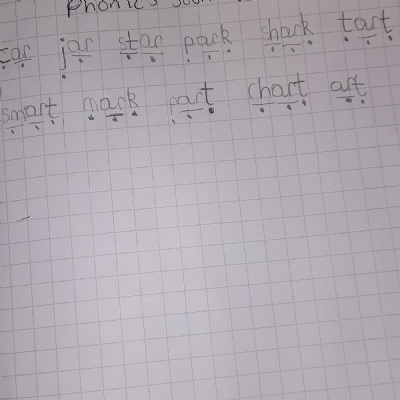 Phonics sound
car jar star park shark tart
smart mark part chart art